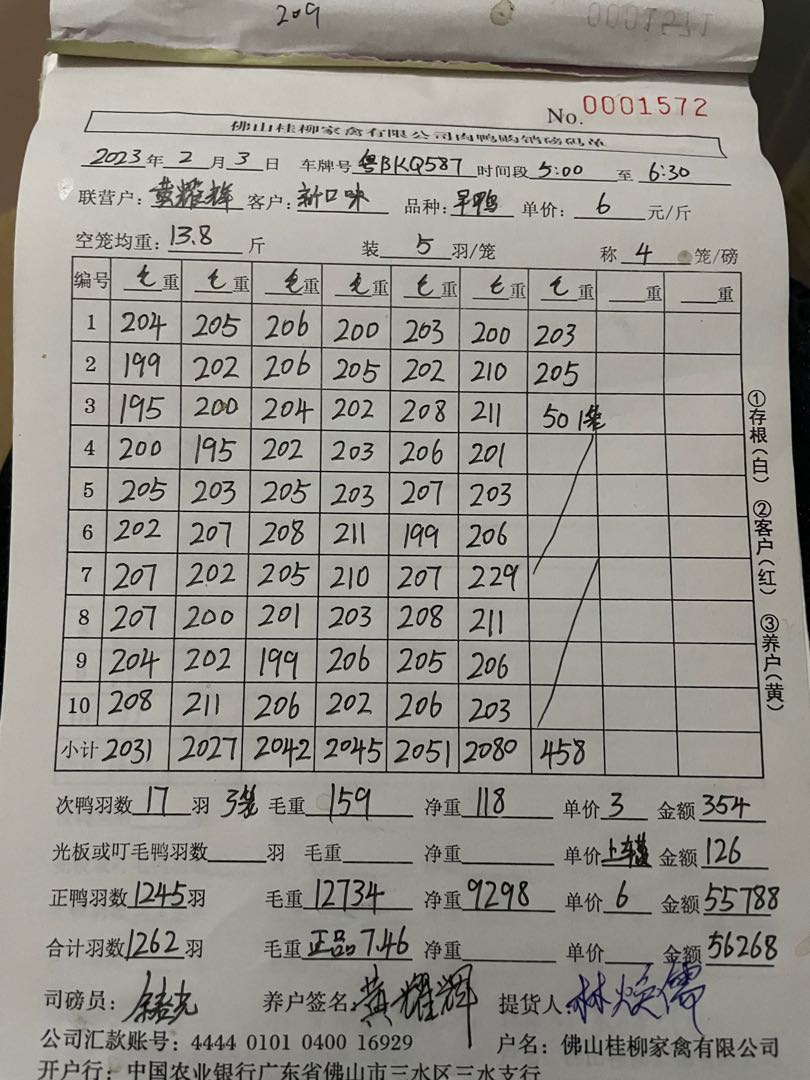 209
0001571
No. 0001572
佛山桂柳家禽有限公司肉鸭购销磅码单
2023年2月3日 车牌号粤BKQ587 时间段5:00至6:30
联营户:黄耀辉 客户:新口味 品种:旱鸭 单价:6元/斤
空笼均重:13.8斤 装5羽/笼 称4笼/磅
编号 毛重 毛重 毛重 毛重 毛重 毛重 毛重 重 重
1 204 205 206 200 203 200 203
2 199 202 206 205 202 210 205
3 195 200 204 202 208 211 50 1笼
4 200 195 202 203 206 201
5 205 203 205 203 207 203
6 202 207 208 211 199 206
7 207 202 205 210 207 229
8 207 200 201 203 208 211
9 204 202 199 206 205 206
10 208 211 206 202 206 203
小计 2031 2027 2042 2045 2051 2080 458
次鸭羽数17羽 3笼 毛重159 净重118 单价3 金额354
光板或叮毛鸭羽数 羽 毛重 净重 单价上车 金额126
正鸭羽数1245羽 毛重12734 净重9298 单价6 金额55788
合计羽数1262羽 毛重正品7.46 净重 单价 金额56268
司磅员: 养户签名:黄耀辉 提货人:林焕儒
公司汇款账号:4444 0101 0400 16929 户名:佛山桂柳家禽有限公司
开户行:中国农业银行广东省佛山市三水区三水支行
①存根(白) ②客户(红) ③养户(黄)